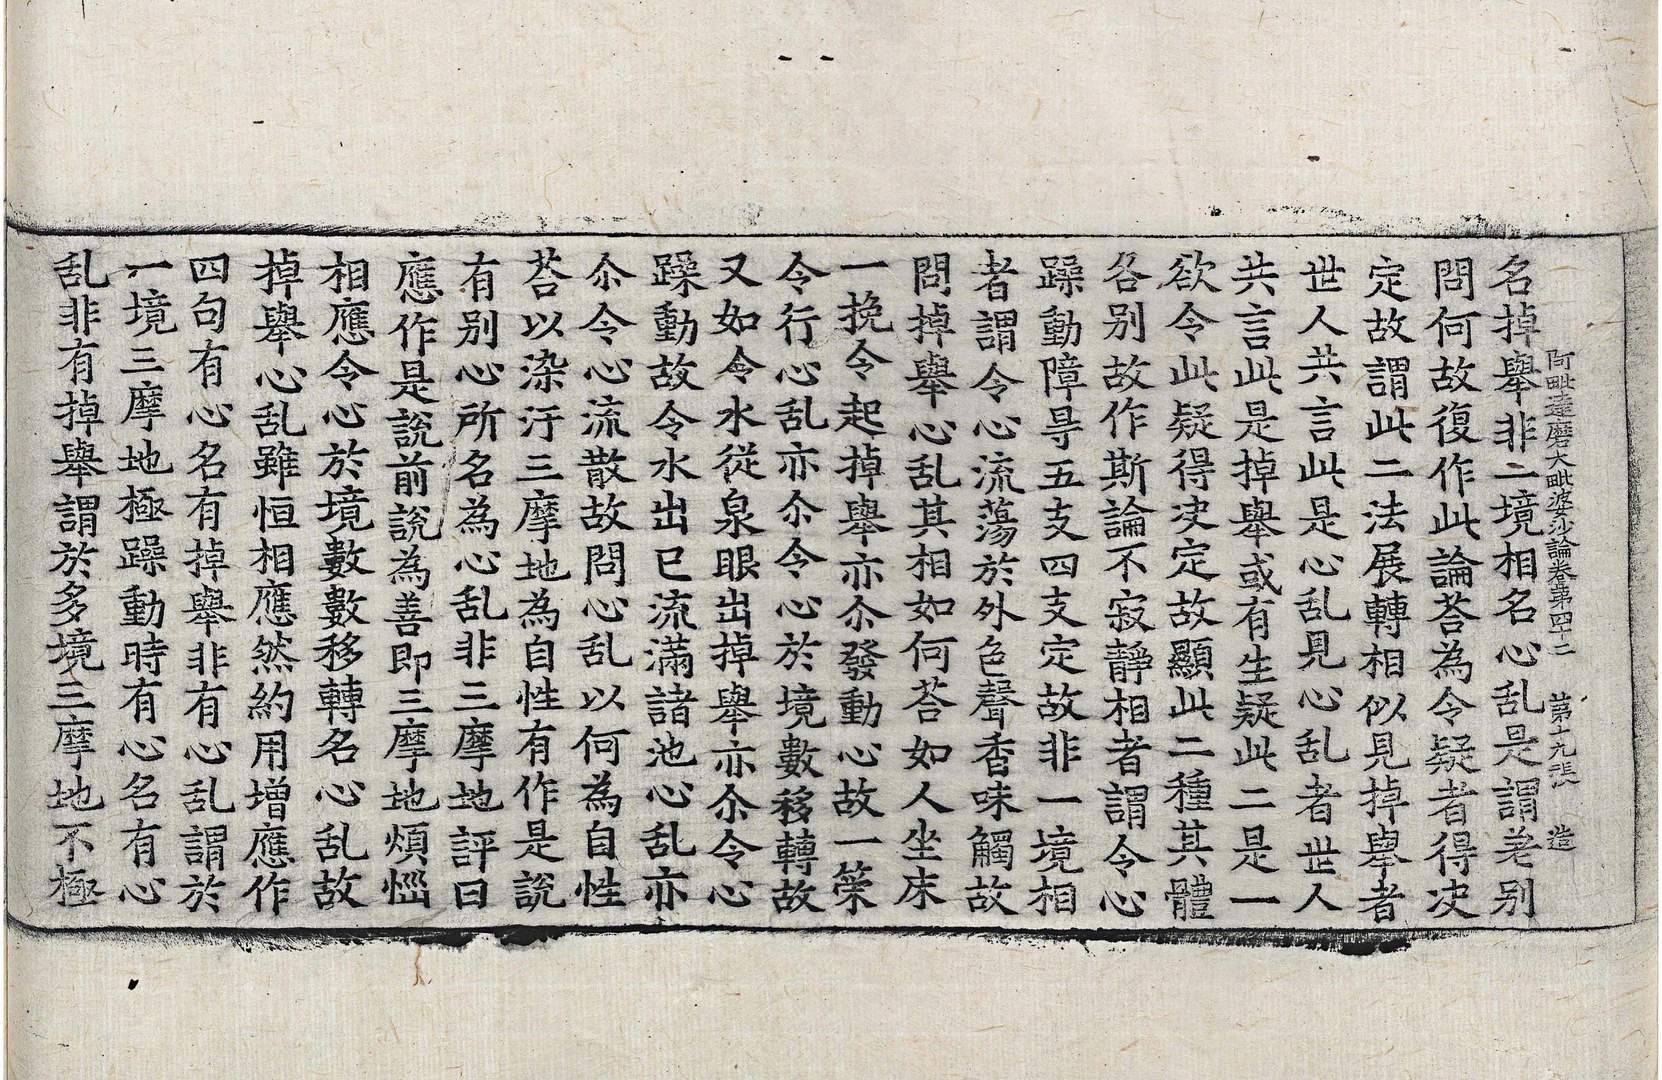 阿毗達磨大毗婆沙論卷第四十二 第十九張 造
名掉舉非一境相名心乱是謂差别
問何故復作此論荅為令疑者得决
定故謂此二法展轉相似見掉舉者
世人共言此是心乱見心乱者世人
共言此是掉舉或有生疑此二是一
欲令此疑得决定故顯此二種其體
各别故作斯論不寂靜相者謂令心
躁動障㝵五支四支定故非一境相
者謂令心流蕩於外色聲香味觸故
問掉舉心乱其相如何荅如人坐床
一挽令起掉舉亦尒發動心故一築
令行心乱亦尒令心於境數移轉故
又如令水從泉眼出掉舉亦尒令心
躁動故令水出已流滿諸池心乱亦
尒令心流散故問心乱以何為自性
荅以染汙三摩地為自性有作是說
有别心所名為心乱非三摩地評曰
應作是說前說為善即三摩地煩惱
相應令心於境數數移轉名心乱故
掉舉心乱雖恒相應然約用增應作
四句有心名有掉舉非有心乱謂於
一境三摩地極躁動時有心名有心
乱非有掉舉謂於多境三摩地不極